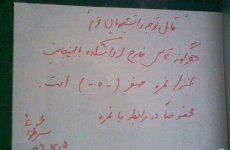 "قابل توجه دانشجویان ترم"
هرگونه تماس خارج از دانشکده با اینجانب
بمنزله نمره صفر (-۰-) است.
مخصوصاً در رابطه با نمره